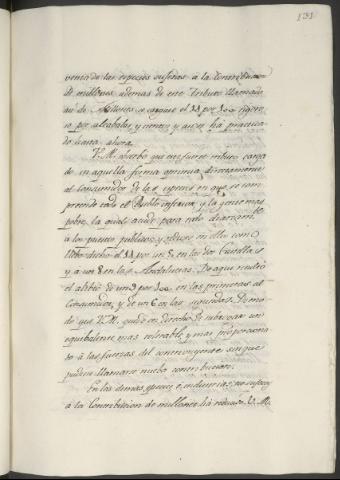 131
venta de las especies sugetas á la Contribucion
de millones ademas de este Tributo llamado
de Millones se cargue el 14 por 100
por alcabalas, y cientos y aun se há practica
do hasta ahora.
V. M. observó que este fuerte tributo carga
do en aquella forma oprimia directamente
al consumidor de las especies en que se com
prende todo el Pueblo inferior, y la gente mas
pobre, la qual acude para todo diariamte
a los puestos publicos, y reduxo en ellos como
llebo dicho el 14 por un 5, en las dos Castillas
y a un 8 en las Andalucias. De aqui nació
el alibio de un 9 por 100, en las primeras al
Consumidor, y de un 6 en las segundas. De mo
do que V. M. quedó en derecho de subrogar un
equibalente mas tolerable, y mas proporciona
do á las fuerzas del contribuyente sin que
pudiera llamarse nueba contribucion.
En las demas especies é industrias, no sugetas
á la Contribucion de millones há reducido V. M.